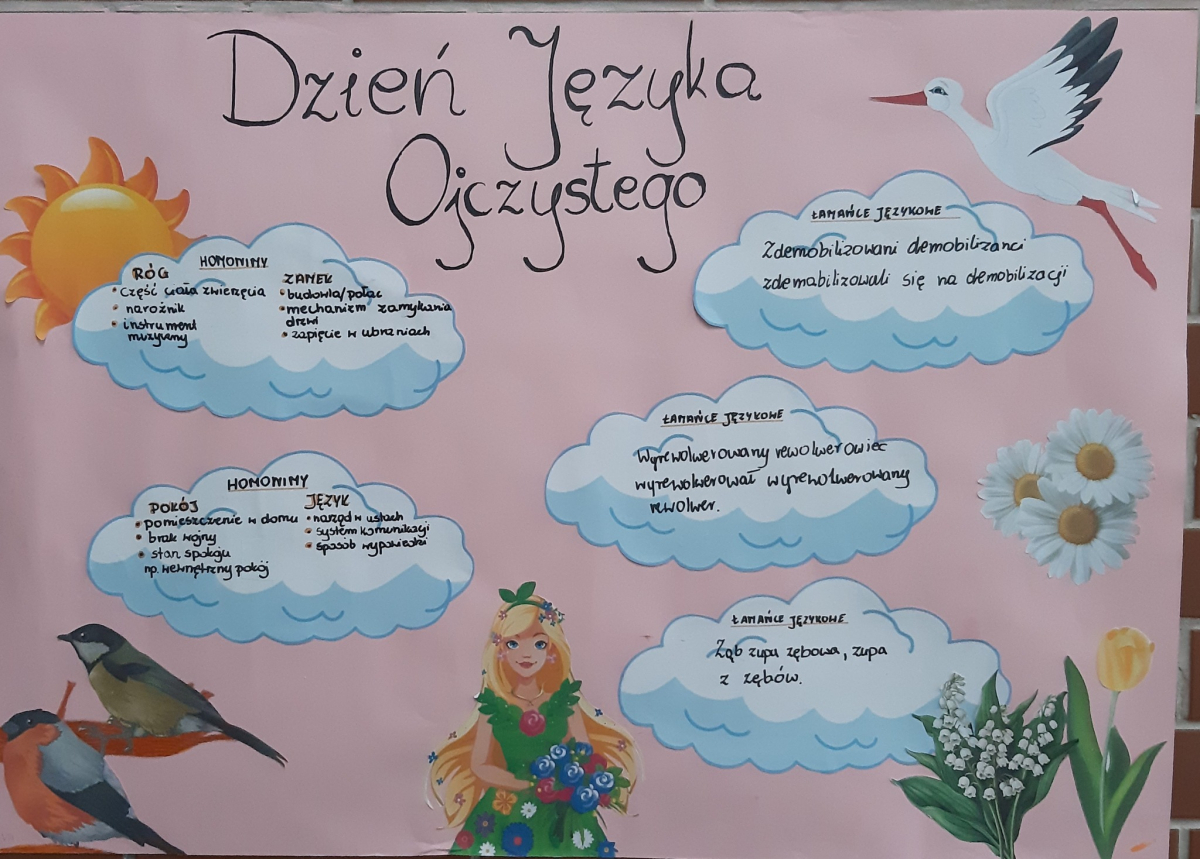 Dzień Języka
Ojczystego
HOMONIMY
RÓG
• część ciała zwierzęcia
• narożnik
• instrument
muzyczny
ZAMEK
• budowla/pałac
• mechanizm zamykania
drzwi
• zapięcie w ubraniach
ŁAMAŃCE JĘZYKOWE
Zdemobilizowani demobilizanci
zdemabilizowali się na demobilizacji
ŁAMAŃCE JĘZYKOWE
Wyrewolwerowany rewolwerowiec
wyrewolwerował wyrewolwerowany
rewolwer.
HOMONIMY
POKÓJ
• pomieszczenie w domu
• brak wojny
• stan spokoju
np. wewnętrzny pokój
JĘZYK
• narząd w ustach
• system komunikacji
• sposób wypowiedzi
ŁAMAŃCE JĘZYKOWE
Ząb zupa zębowa, zupa
z zębów.